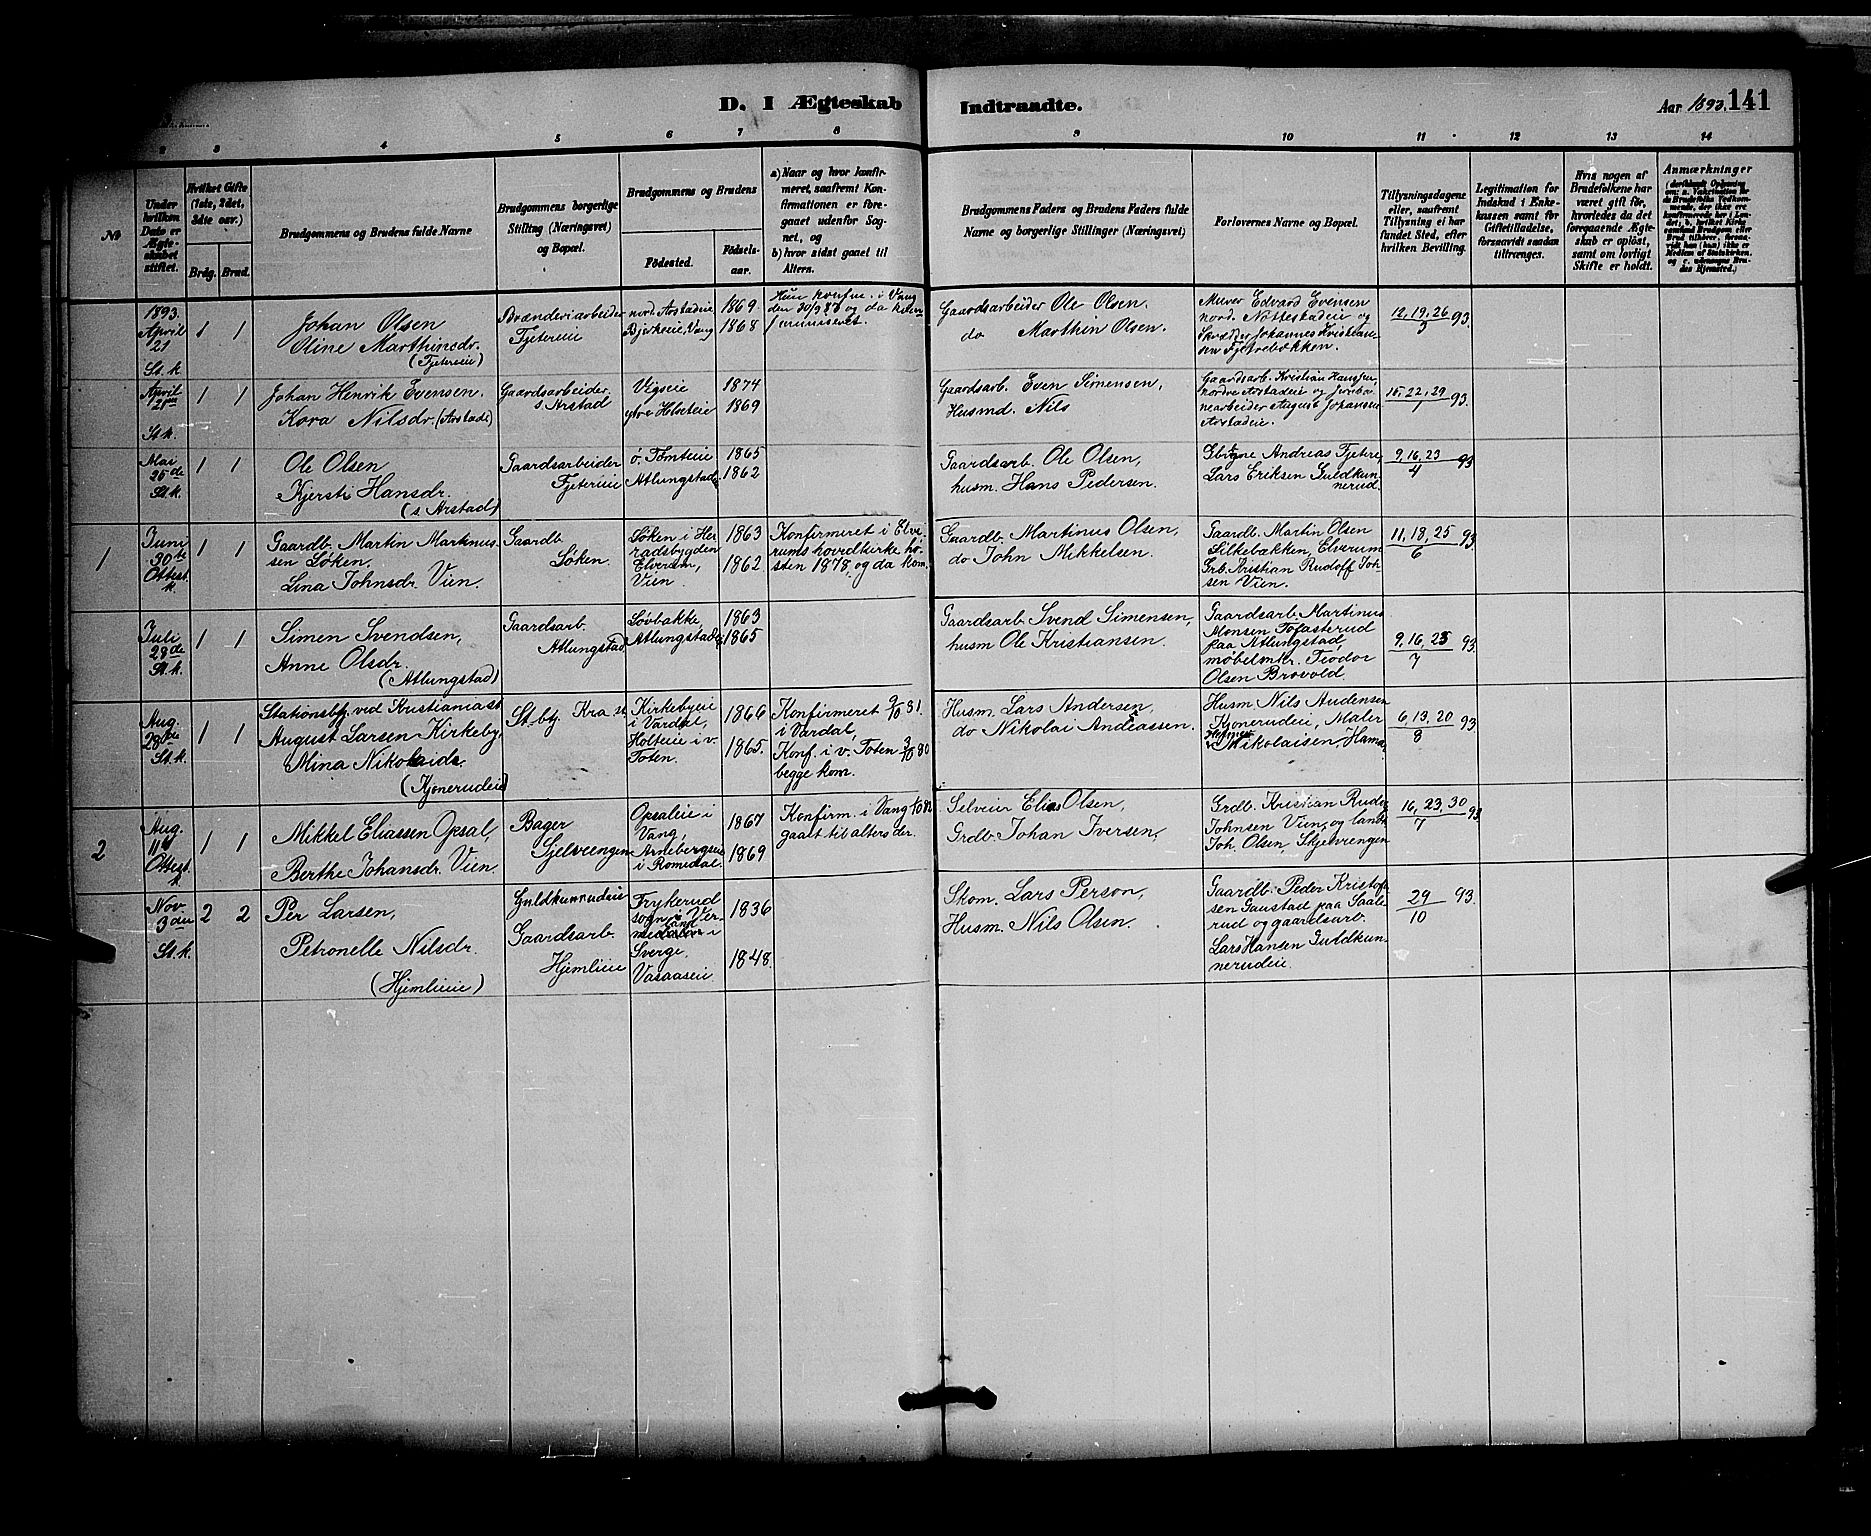 D. I Ægteskab Indtraadte.
Aar 1893. 141
2 3 4 5 6 7 8 9 10 11 12 13 14
№
Under hvilken Dato er Ægteskabet stiftet.
Hvilket Gifte (1ste, 2det, 3die osv.)
Brdg. Brud.
Brudgommens og Brudens fulde Navne
Brudgommens borgerlige Stilling (Næringsvei) og Bopæl.
Brudgommens og Brudens
Fødested.
Fødselsaar.
a) Naar og hvor konfirmeret, saafremt Konfirmationen er foregaaet udenfor Sognet, og
b) hvor sidst gaaet til Alters.
Brudgommens Faders og Brudens Faders fulde Navne og borgerlige Stillinger (Næringsvei)
Forlovernes Navne og Bopæl.
Tillysningsdagene eller, saafremt Tillysning ei har fundet Sted, efter hvilken Bevilling.
Legitimation for Indskud i Enkekassen samt for Giftetilladelse, forsaavidt saadan tiltrænges.
Hvis nogen af Brudefolkene har været gift før, hvorledes da det foregaaende Ægteskab er opløst, samt om lovligt Skifte er holdt.
Anmærkninger
1893.
April 21
St. k.
1 1
Johan Olsen
Oline Marthinsdr.
(Fjetereie)
Brænderiarbeider
Fjetereie
nord. Arstadeie 1869
Bjørkeeie, Vang 1868
Hun konfirm. i Vang
den 30/9 83 og da kommuniseret.
Gaardsarbeider Ole Olsen.
do Marthin Olsen.
Murer Edvard Evensen
nord. Nøttestadeie og
Skrædder Johannes Kristiansen Fjeterebækken.
12, 19, 26/3 93.
April 21de
St. k.
1 1
Johan Henrik Evensen.
Kora Nilsdr. (Arstade)
Gaardsarbeider
s. Arstad
Vigseie 1874
ytre Helseteie 1869
Gaardsarb. Even Simensen,
Husmd. Nils
Gaardsarb. Kristian Hansen,
nordre Arstadeie og Jernbanearbeider August Johansen
Arstadeie.
15, 22, 29/1 93.
Mai 25de
St. k.
1 1
Ole Olsen
Kjersti Hansdr.
(s. Arstad)
Gaardsarbeider
Fjetereie
ø. Tønteie 1865
Atlungstad 1862
Gaardsarb. Ole Olsen,
husm. Hans Pedersen.
Gbrugne Andreas Fjetre,
Lars Eriksen Guldkunnerud.
9, 16, 23/4 93
1
Juni 30te
Ottest. k.
1 1
Gaardb. Martin Martinussen Løken.
Lina Johnsdr. Vien.
Gaardb.
Løken.
Løken i Heradsbygden
Elverum, 1863
Vien. 1862
Konfirmeret i Elverums hovedkirke høsten 1878, og da kom.
Gaardb. Martinus Olsen,
do John Mikkelsen.
Gaardb. Martin Olsen
Silkebækken, Elverum
Grb. Kristian Rudolf Johnsen Vien.
11, 18, 25/6 93.
Juli 28de
St. k.
1 1
Simen Svendsen,
Anne Olsdr.
(Atlungstad)
Gaardsarb.
Atlungstad
Løvbakke, 1863
Atlungstade 1865
Gaardsarb. Svend Simensen,
husm Ole Kristiansen.
Gaardsarb. Martinus
Monsen Tofasterud
paa Atlungstad,
møbelmkr. Teodor
Olsen Brovold.
9, 16, 23/7 93.
Aug. 28de
St. k.
1 1
Stationsbtj. ved Kristiania st.
August Larsen Kirkeby,
Mina Nikolaidr.
(Kjønerudeie)
St. btj. Kra. st.
Kirkebyeie
i Vardal, 1866
Holteie i v. Toten. 1865.
Konfirmeret 2/10 81.
i Vardal,
Konf. i v. Toten 3/10 80
begge kom.
Husm. Lars Andersen,
do Nikolai Andreassen.
Husm Nils Audensen
Kjønerudeie, Maler
Nikolaisen, Hamar
6, 13, 20/8 93.
2
Aug. 11te
Ottest. k.
1 1
Mikkel Eliassen Opsal,
Berthe Johansdr. Vien.
Bager
Sjelvrengen
Opsaleie i
Vang, 1867
Arnebergseie
i Romedal. 1869
Konfirm. i Vang 1/10 82
gaaet til alters der.
Selveier Elias Olsen,
Grdb. Johan Iversen,
Grdb. Kristian Rudolf
Johnsen Vien, og landh.
Joh. Olsen, Skjelvrengen
16, 23, 30/7 93
Nov. 3die
St. k.
2 2
Per Larsen,
Petronelle Nilsdr.
(Hjemlieie)
Guldkunnrudeie
Gaardsarb.
Hjemlieie
Frykerud
sogn i Vermeland i
Sverge. 1836
Vasaaseie 1848.
Skom. Lars Person,
Husm. Nils Olsen.
Gaardb. Peder Kristofersen Gaustad paa Saalerud og gaardsarb.
Lars Hansen Guldkunnerudeie.
29/10 93.